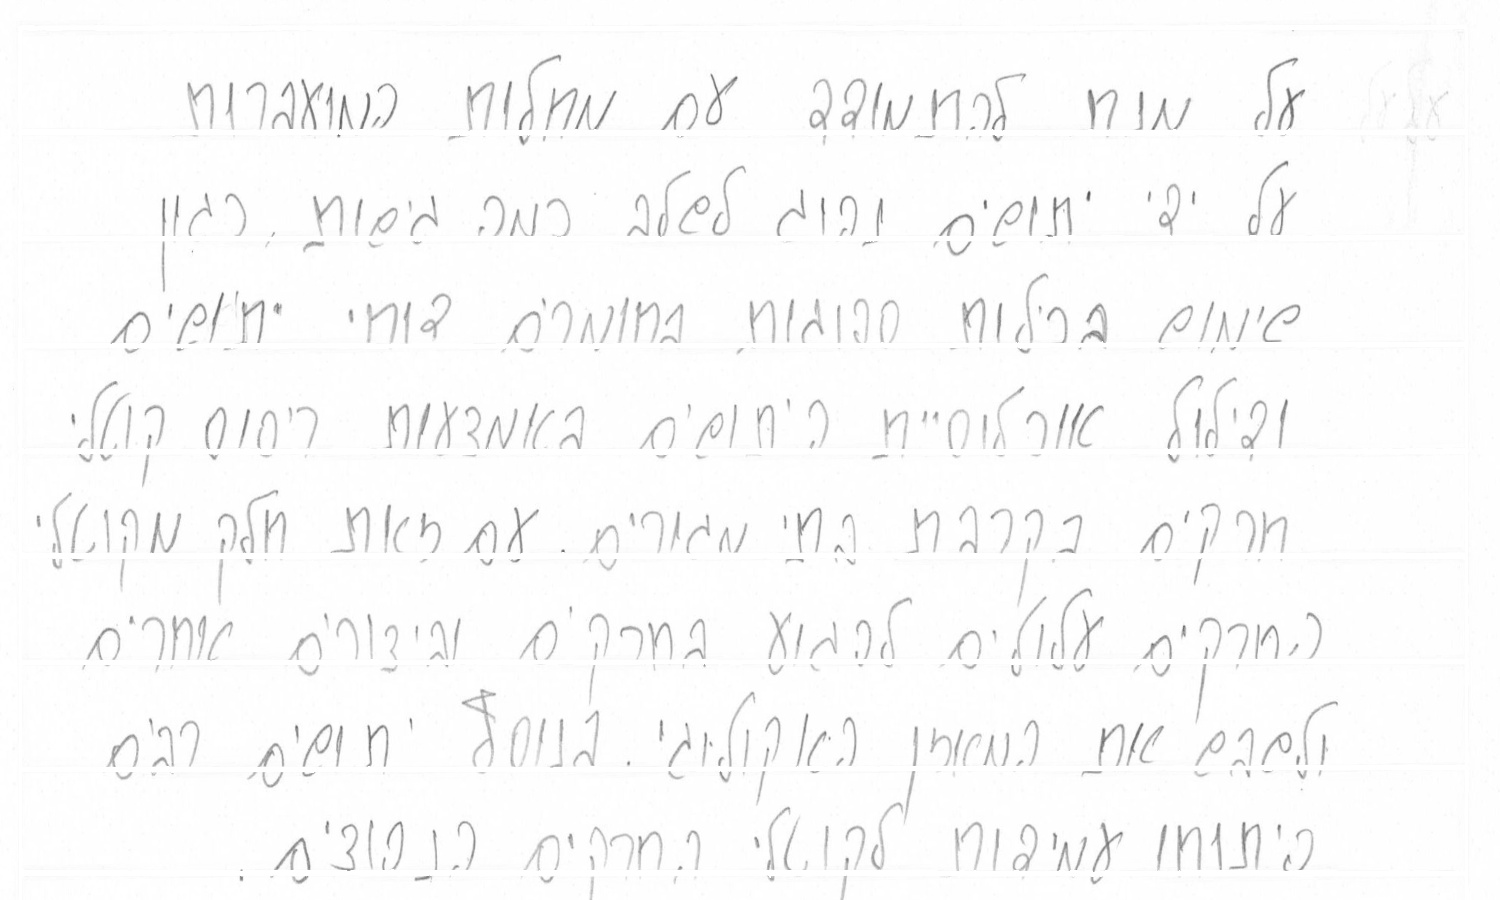 על מנת להתמודד עם מחלות המועברות
על ידי יתושים נהוג לשלב כמה גישות, כגון
שימוש בכילות ספוגות בחומרים דוחי יתושים
ודילול אוכלוסיית היתושים באמצעות ריסוס קוטלי
חרקים בקרבת בתי מגורים. עם זאת חלק מקוטלי
החרקים עלולים לפגוע בחרקים וביצורים אחרים
ולשבש את המאזן האקולוגי. בנוסף יתושים רבים
פיתחו עמידות לקוטלי החרקים הנפוצים.